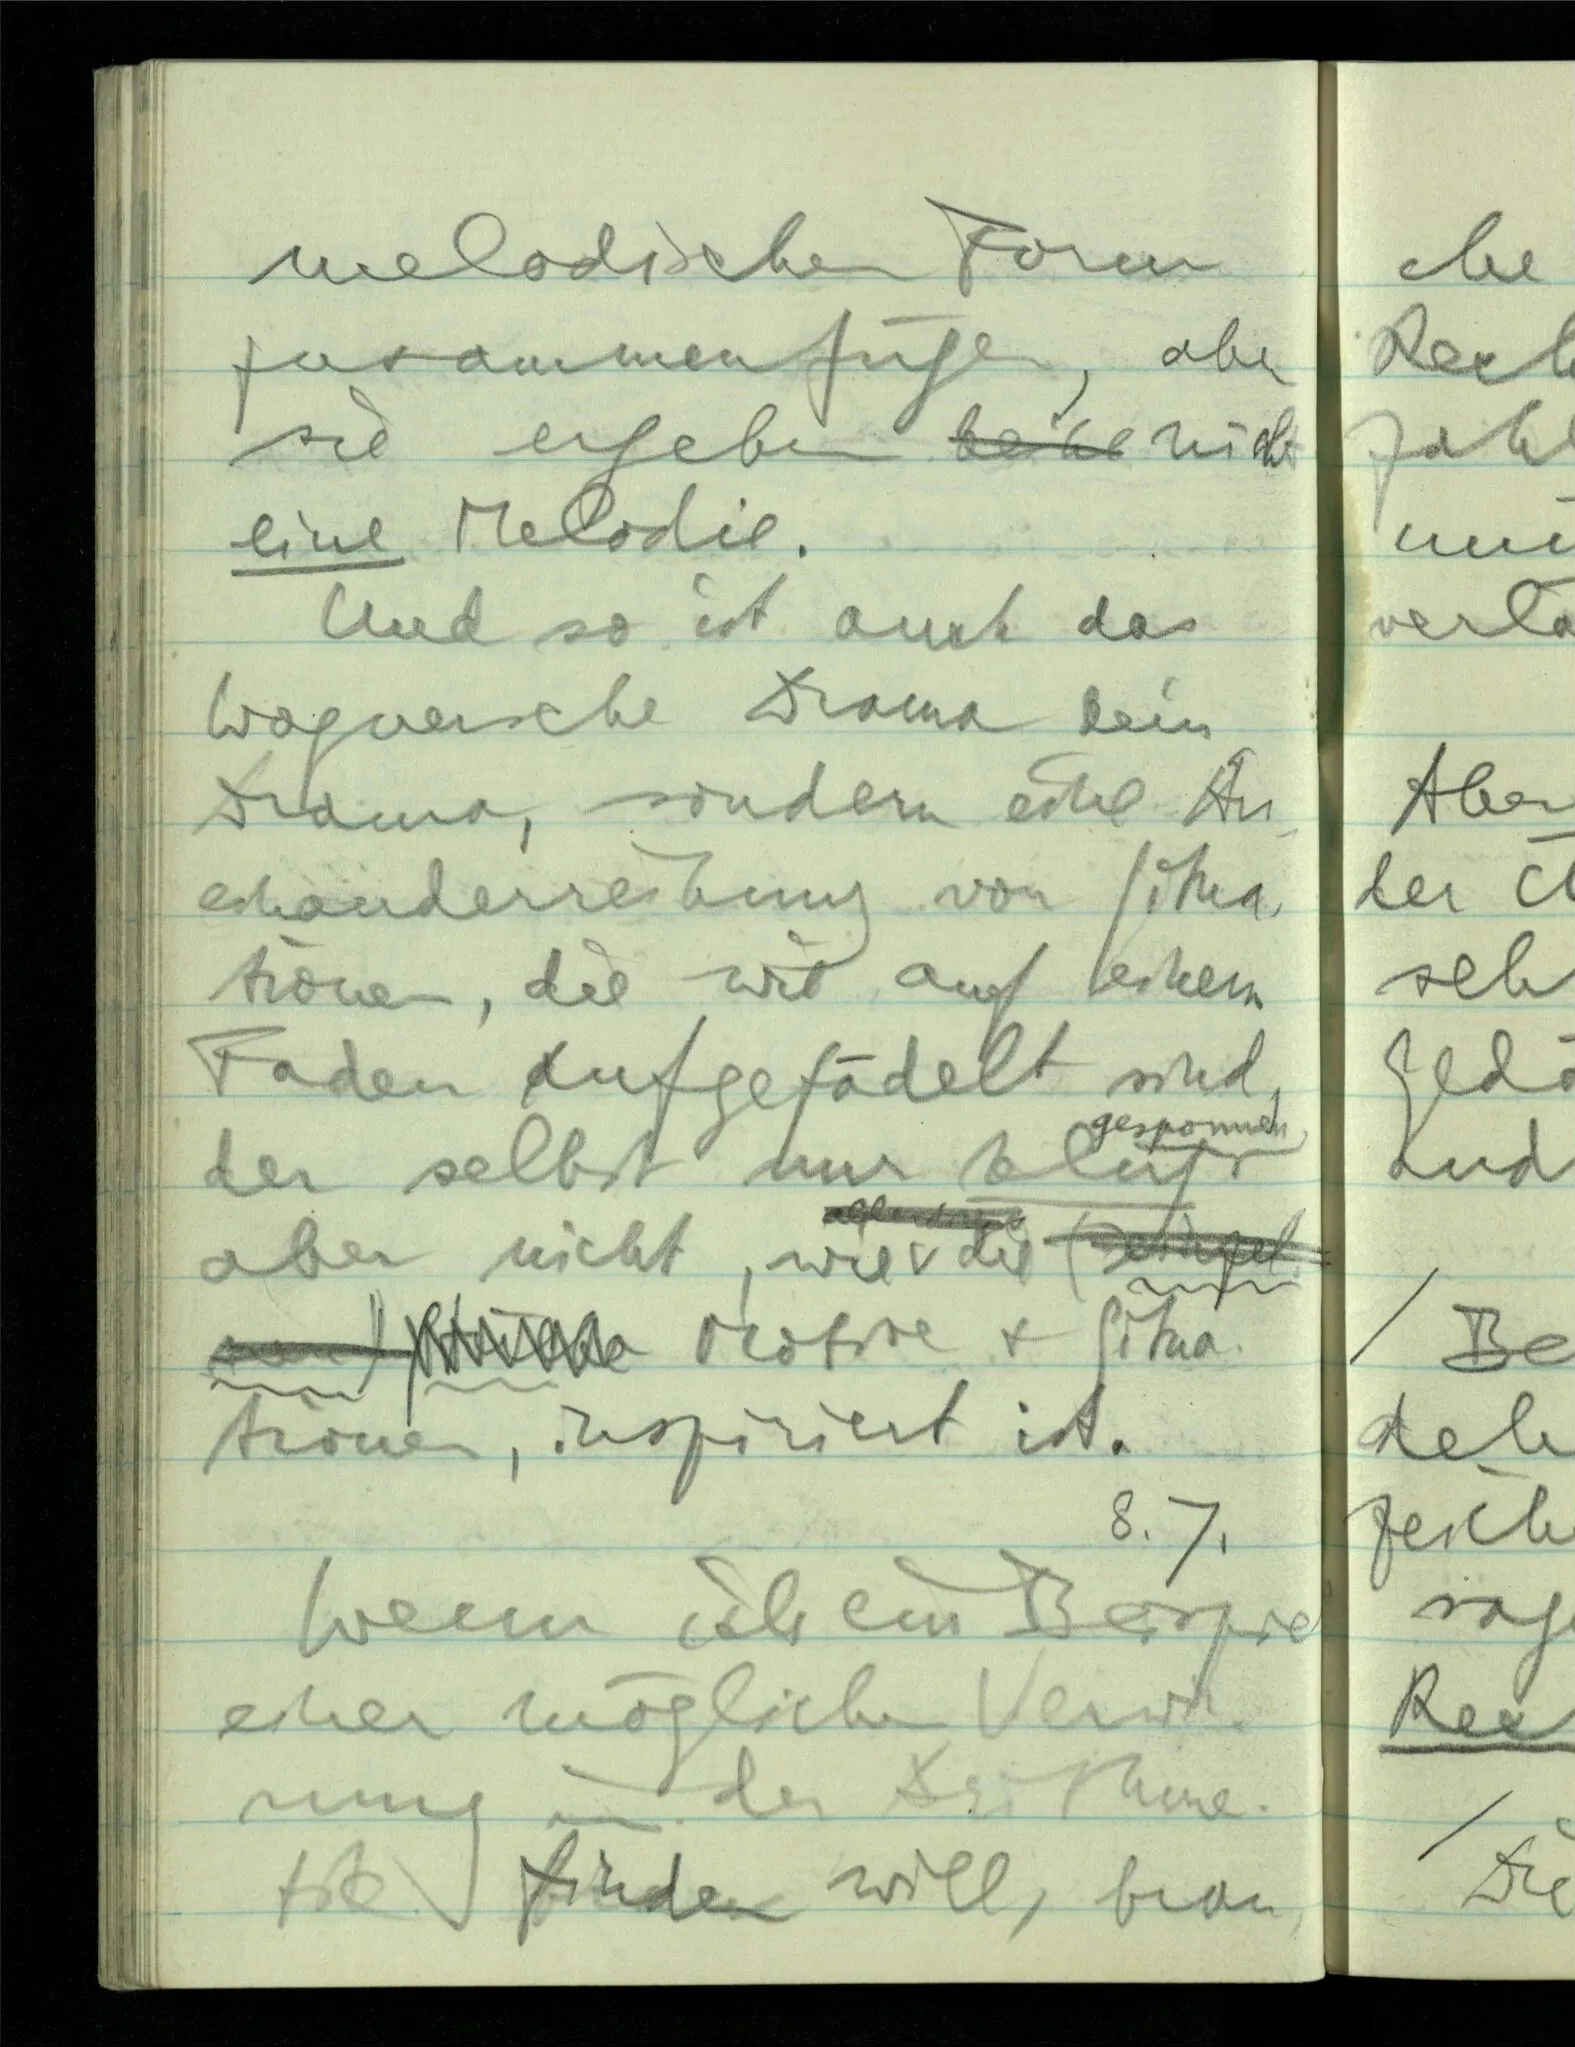 melodischen Form
zusammenfügen, aber
sie ergeben keine nicht
eine Melodie.
Und so ist auch das
Wagnersche Drama kein
Drama, sondern eine An
einanderreihung von Situa
tionen, die wie auf einem
Faden aufgefädelt sind,
gesponnen
der selbst nur klug
aber nicht, wie die
Motive & Situa
tionen, inspiriert ist.
8. 7.
Wenn ich ein Beispiel
einer möglichen Verwir
rung in der Arithme
tik finden will, brau
che
Rech
zahl
verla
Aber
der
seh
Gedä
und
/ Be
deh
zeich
sage
Rec
/ Die